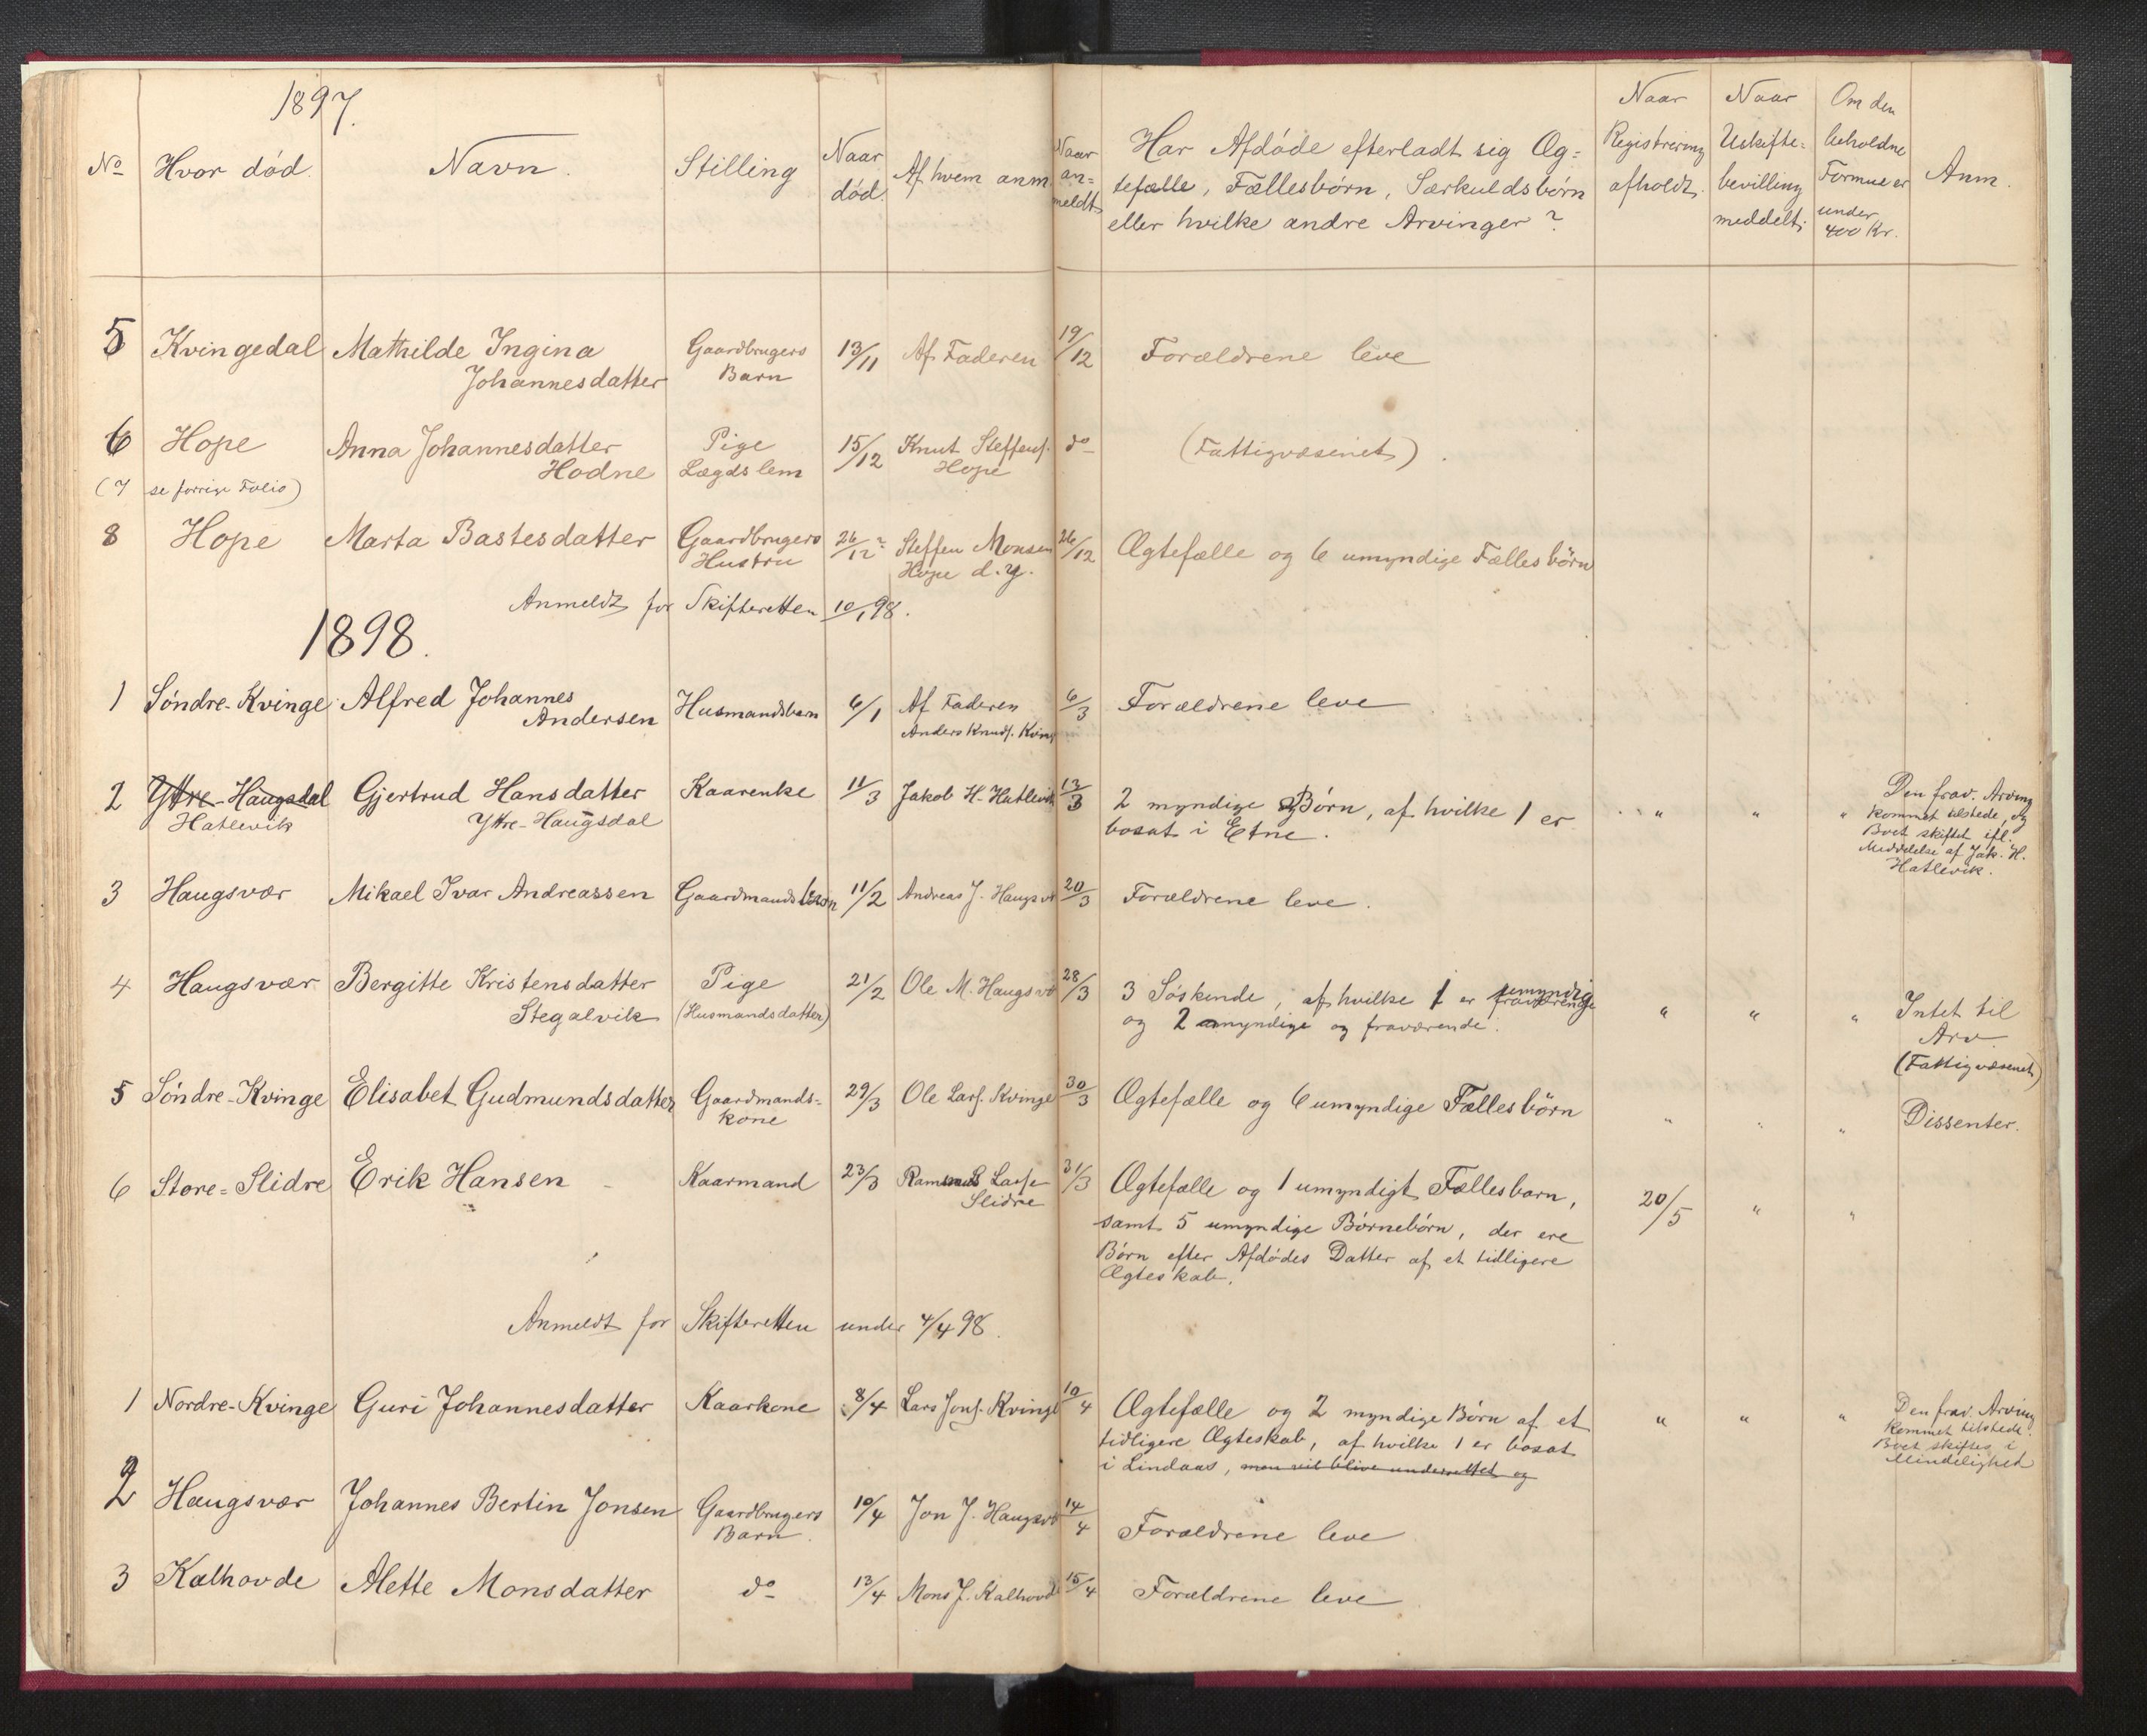 1897.
No Hvor død. Navn. Stilling Naar død. Af hvem anm. Naar an=meldt Har Afdøde efterladt sig Æg=
tefælle, Fællesbørn, Særkuldsbørn
eller hvilke andre Arvinger? Naar Registrering afholdt. Naar Uskifte=bevilling meddelt. Om den beholdne Formue er under 400 Kr. Anm.
5 Kvingedal Mathilde Ingina Gaardbrugers 13/11 Af Faderen 19/12 Forældrene leve
Johannesdatter Barn
6 Hope Anna Johannesdatter Pige 15/12 Knut Steffens. do (Fattigvæsenet).
Hodne Lægdslem Hope
(7 se forrige Folio)
8 Hope Marta Bastesdatter Gaardbrugers 26/12? Steffen Monsen 26/12 Ægtefælle og 6 umyndige Fællesbörn
Hustru Hope d.y.
Anmeldt for Skifteretten 10/1 98.
1898.
1 Søndre-Kvinge Alfred Johannes Husmandsbarn 6/1 Af Faderen 6/3 Forældrene leve
Andersen Anders Knuds. Kvinge
2 Yttre-Haugsdal Gjertrud Hansdatter Kaarenke 11/3 Jakob H. Hatlevik 13/3 2 myndige Børn, af hvilke 1 er " " " Den frav. Arving
Hatlevik Yttre-Haugsdal bosat i Etne. kommet tilstede, og
Boet skiftet ifl.
Meddelelse af Jak. H.
Hatlevik.
3 Haugsvær Mikael Ivar Andreassen Gaardmandsbarn 11/2 Andreas J. Haugsvær 20/3 Forældrene leve.
4 Haugsvær Bergitte Kristensdatter Pige 21/2 Ole M. Haugsvær 28/3 3 Søskende, af hvilke 1 er umyndig " " " Intet til
Stegalvik (Husmandsdatter) og 2 myndige og fraværende. Arv
(Fattigvæsenet)
5 Søndre-Kvinge Elisabet Gudmundsdatter Gaardmands= 29/3 Ole Lars. Kvinge 30/3 Ægtefælle og 6 umyndige Fællesbörn " " " Dissenter.
kone
6 Store=Slidre Erik Hansen Kaarmand 23/3 Rasmus Lars. 31/3 Ægtefælle og 1 umyndigt Fællesbarn, 20/5 " "
Slidre samt 5 umyndige Børnebörn, der ere
Børn efter Afdødes Datter af et tidligere
Ægteskab.
Anmeldt for Skifteretten under 4/4 98.
1 Nordre-Kvinge Guri Johannesdatter Kaarkone 8/4 Lars Jons. Kvinge 10/4 Ægtefælle og 2 myndige Børn af et " " " Den frav. Arving
tidligere Ægteskab, af hvilke 1 er bosat kommet tilstede.
i Lindaas, men vil blive underrettet og Boet skiftes i
Mindelighed
2 Haugsvær Johannes Bertin Jonsen Gaardbrugers 10/4 Jon J. Haugsvær 14/4 Forældrene leve
Barn.
3 Kalhovde Alette Monsdatter do 13/4 Mons J. Kalhovde 15/4 Forældrene leve